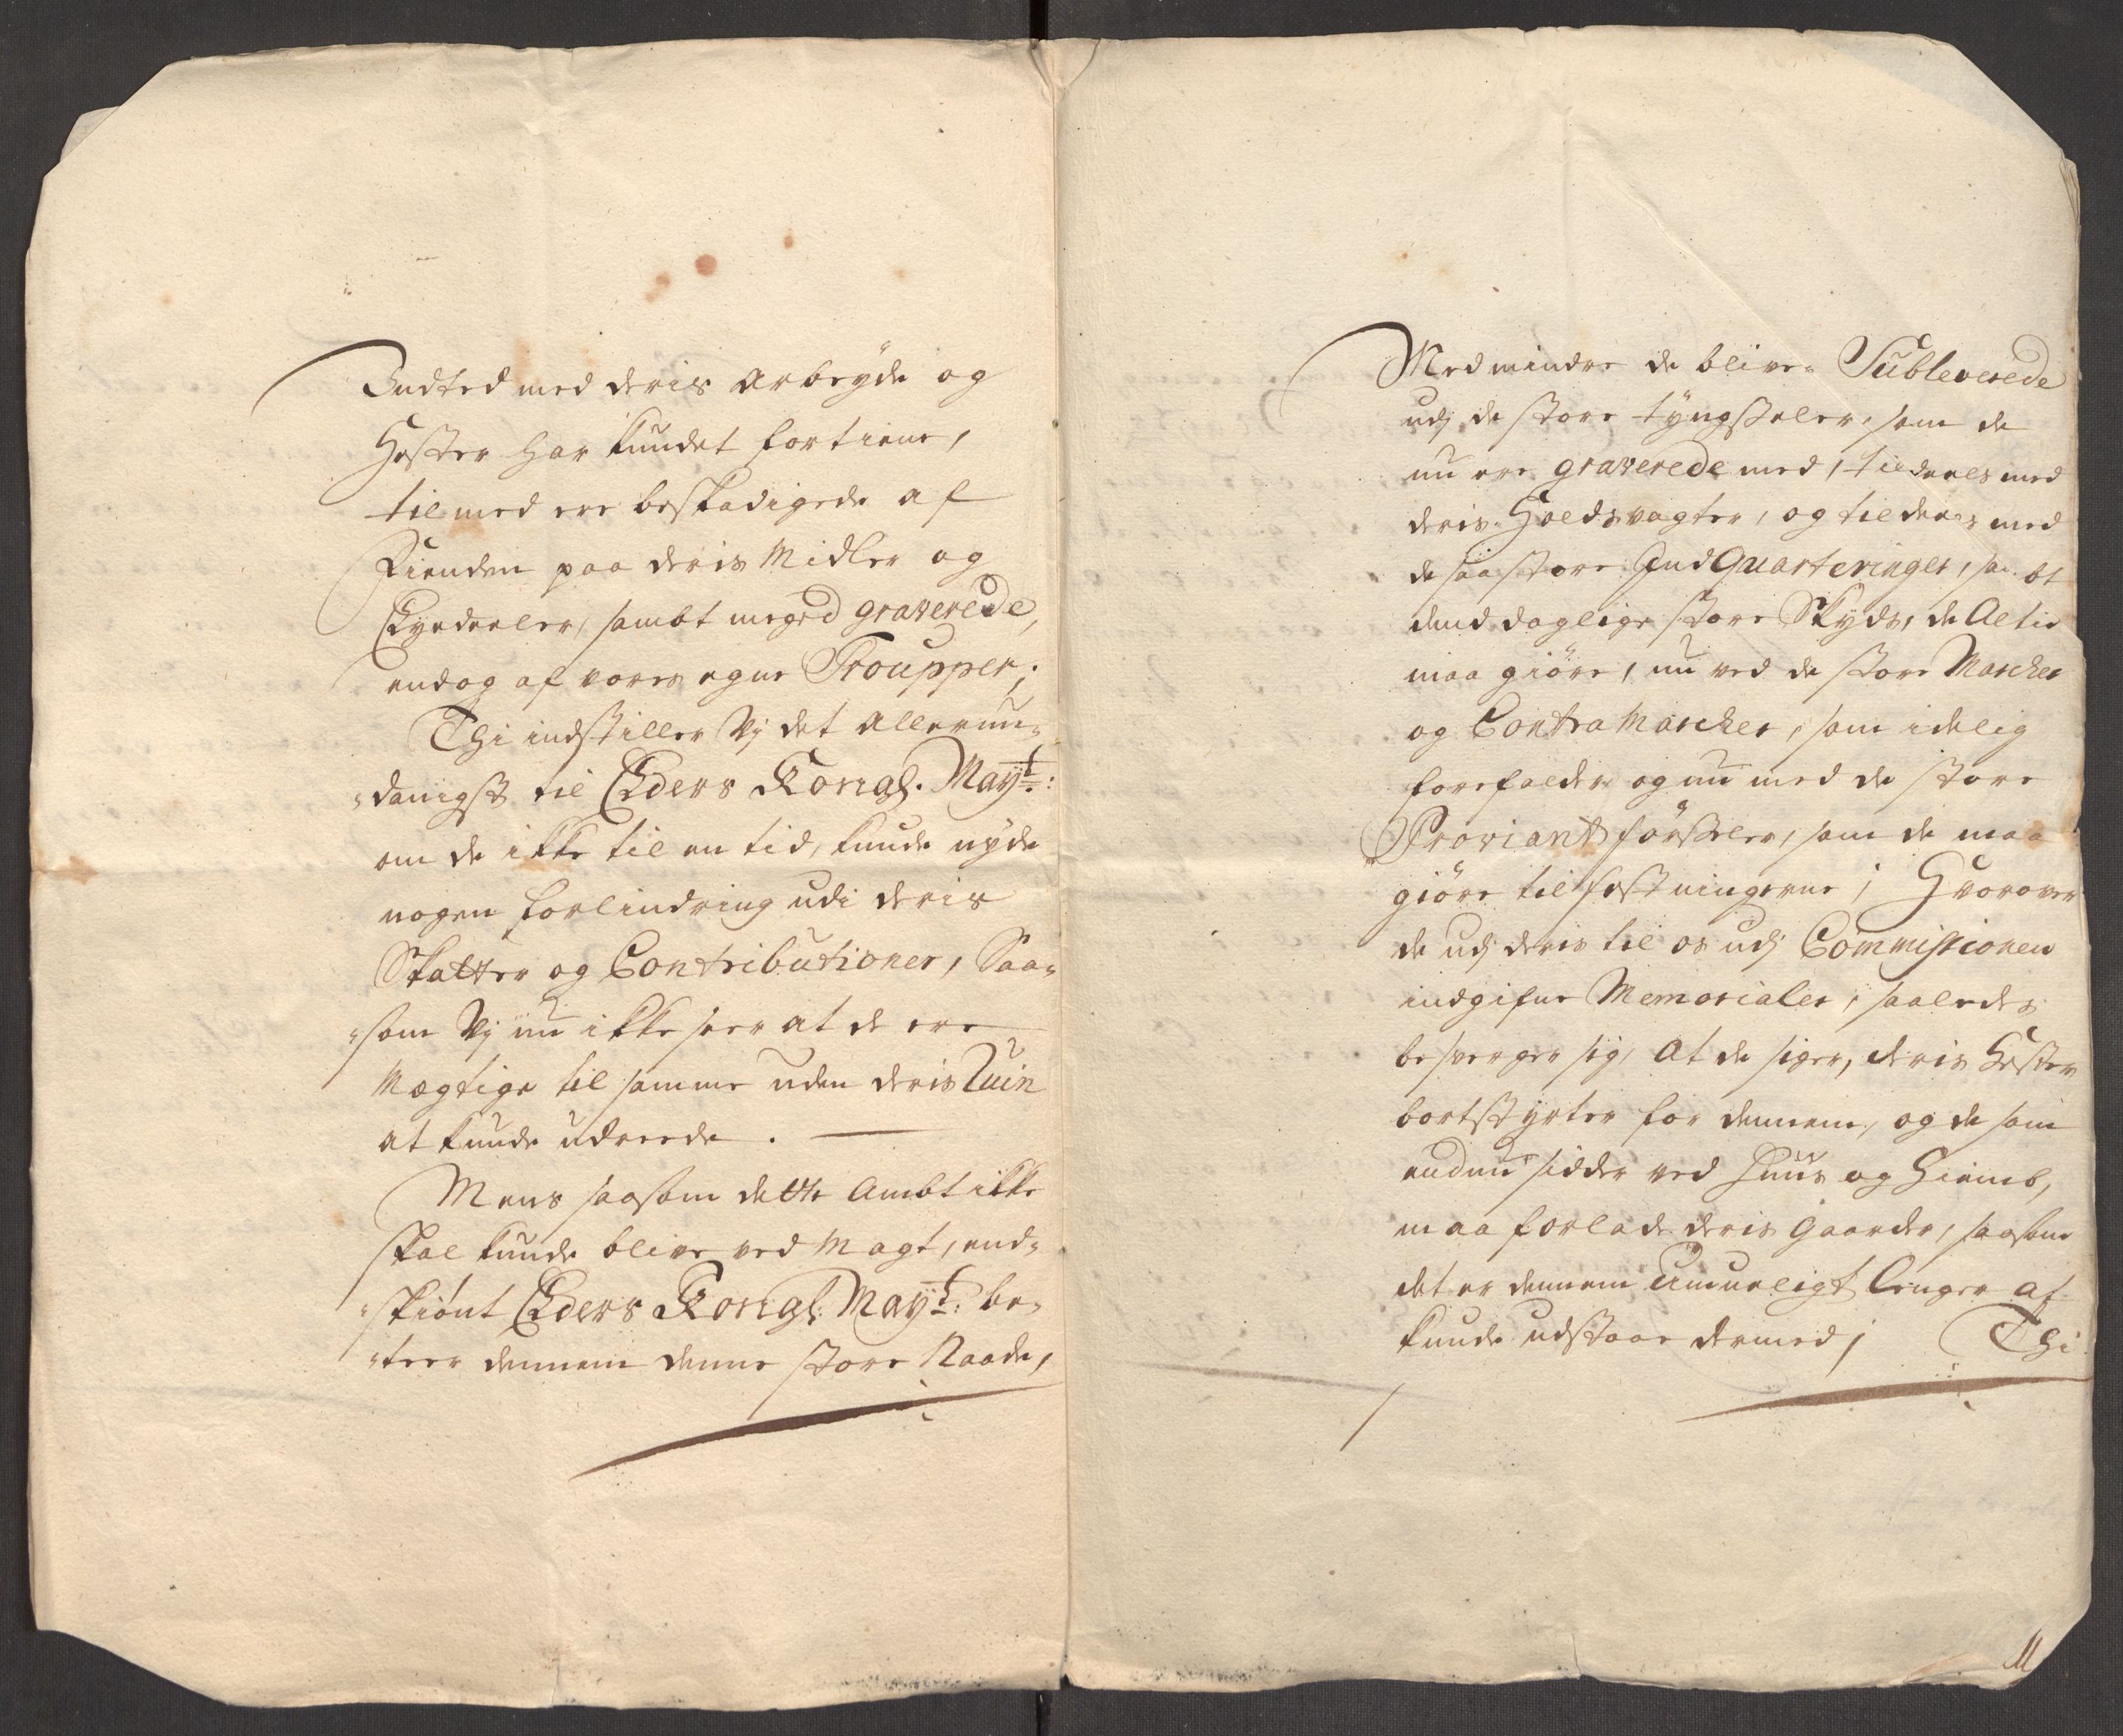 Indted med deris Arbeyde og
Hester har kundet fortiene,
til med ere beskadigede af
Fienden paa deris Midler og
Eyendeeler, sambt meged graverede,
endog af vores egne Troupper;
Thi indstiller Vj det allerun¬
„danigst til Eders Kongl. Mayt:
om de ikke til en tid, kunde nyde
nogen forlindring udi deris
Skatter og Contributioner, Saa¬
„som Vj nu ikke seer at de ere
Megtige til samme uden deris Ruin
at kunde udreede.
Mens saasom dette Ambt ikke
skal kunde blive ved Magt, end¬
„skiønt Eders Kongl: Mayt: be¬
„teer dennem denne store Naade,
Medmindre de bliver Subleverede
udj de store tyngsteler, som de
nu ere graverede med, til deels med
deris Holdsvagter, og til deels med
de saa store Indquarteringer, sambt
dend daglige store Skyds, de Altid
maa giøre, nu ved de store Marcher
og Contramarcher, som idelig
forefalder og nu med de store
Proviant førseler, som de maa
giøre til festningerne; Hvorover
de udj deris til os udj Commissionen
indgifne Memorialer, saaledes
besverger sig, At de siger, deris Hester
bortstyrter for dennem, og de som
endnu sidder ved Huus og Hiemb,
maa forlade deris Gaarder, saasom
det er dennem Umueligt lenger at
kunde udstaae dermed; Thi